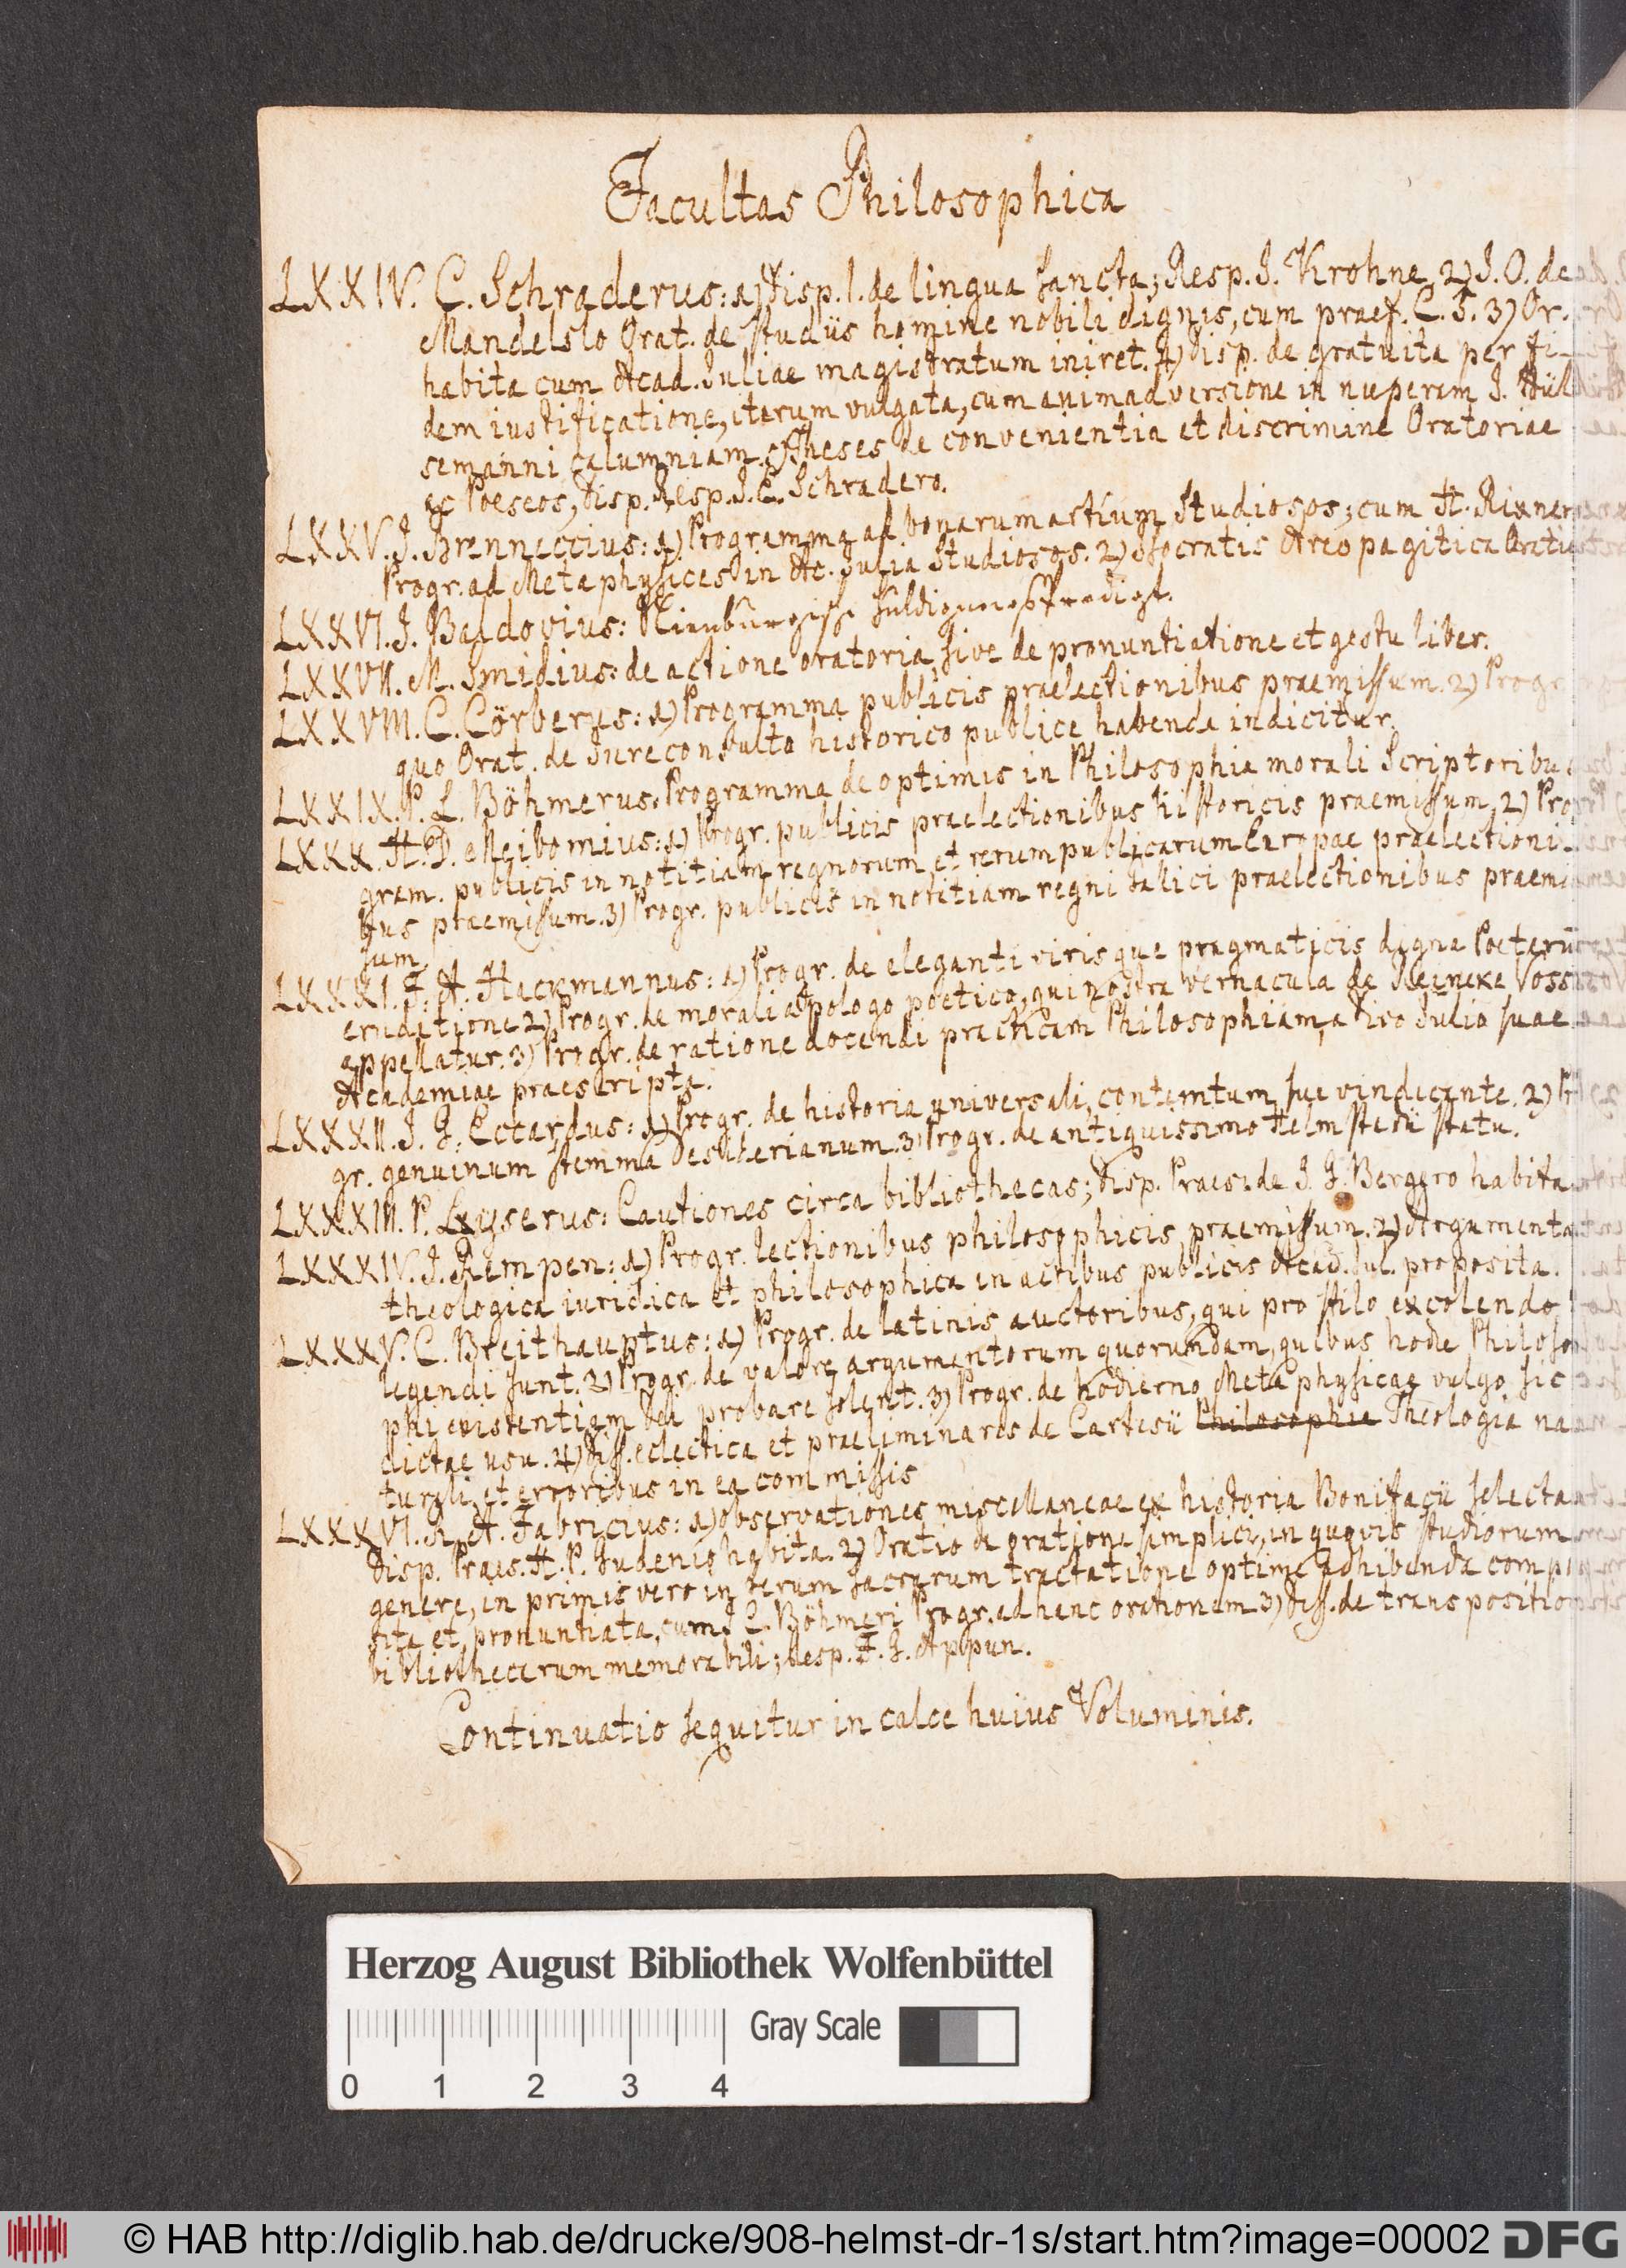 Facultas Philosophica
LXXIV. C. Schraderus: 1) Disp. I. de lingua sancta; Resp. J. Krohne. 2) J. O. de
Mandelslo Orat. de studiis homine nobili dignis, cum praef. C. S. 3) Or.
habita cum Acad. Juliae magistratum iniret. 4) Disp. de gratuita per fi-
dem iustificatione, iterum vulgata, cum animadversione in nuperam J. Hül
semanni calumniam. Theses de convenientia et discrimine Oratoriae
ac Poeseos, Disp. Resp. J. E. Schradero.
LXXV. J. Brenneccius: 1) Programma ad bonarum artium Studiosos; cum H. Rixner
Progr. ad Metaphysices in Ac. Julia Studiosos. 2) Isocratis Areopagitica Oratio
LXXVI. J. Baldovius: Nienburgische Huldigungs Predigt.
LXXVII. M. Smidius: de actione oratoria, sive de pronuntiatione et gestu liber.
LXXVIII. C. Cörberus: 1) Programma publicis praelectionibus praemissum. 2) Progr.
quo Orat. de Jureconsulto historico publice habenda indicitur.
LXXIX. P. L. Böhmerus. Programma de optimis in Philosophia morali Scriptoribus
LXXX. H. D. Meibomius: 1) Progr. publicis praelectionibus historicis praemissum, 2) Pro
gram. publicis in notitiam regnorum et rerum publicarum Europae praelectioni
bus praemissum. 3) Progr. publicis in notitiam regni Gallici praelectionibus praemis
sum.
LXXXI. F. A. Hackmannus: 1) Progr. de eleganti virisque pragmaticis digna Poetarū
eruditione 2) Progr. de morali apologo poetico, qui nostra vernacula de Reineke Voss
appellatur. 3) Progr. de ratione docendi practicam Philosophiam, a Divo Julio suae
Academiae praescripta.
LXXXII. J. G. Eccardus: 1) Progr. de historia universali, contemtum sui vindicante. 2) Pr
gr. genuinum stemma Desiderianum. 3) Progr. de antiquissimo Helmstadii statu.
LXXXIII. P. Lyserus: Cautiones circa bibliothecas; Disp. Praeside J. G. Bergero habita
LXXXIV. J. Rempen: 1) Progr. lectionibus philosophicis praemissum. 2) Argumenta
theologica iuridica et philosophica in actibus publicis Acad. Jul. proposita.
LXXXV. C. Breithauptus: 1) Progr. de latinis auctoribus, qui pro stilo excolendo
legendi sunt. 2) Progr. de valore argumentorum quorundam, quibus hodie Philoso
phi existentiam Dei probare solent. 3) Progr. de hodierno Metaphysicae vulgo sic
dictae usu. 4) Diss. eclectica et praeliminares de Cartesii Philosophia Theologia na
turali, et erroribus in ea commissis
LXXXVI. R. A. Fabricius: 1) observationes miscellaneae ex historia Bonifacii selecta
Disp. Praes. H. P. Gudenio habita. 2) Oratio de oratione simplici, in quovis studiorum
genere, in primis vero in rerum sacrarum tractatione optime adhibenda compo
sita et pronuntiata, cum J. C. Böhmeri Progr. ad hanc orationem. 3) Diss. de transpositio
bibliothecarum memorabili; Resp. F. J. Appun.
Continuatio sequitur in calce huius Voluminis.
Herzog August Bibliothek Wolfenbüttel
Gray Scale
0 1 2 3 4
© HAB http://diglib.hab.de/drucke/908-helmst-dr-1s/start.htm?image=00002 DFG